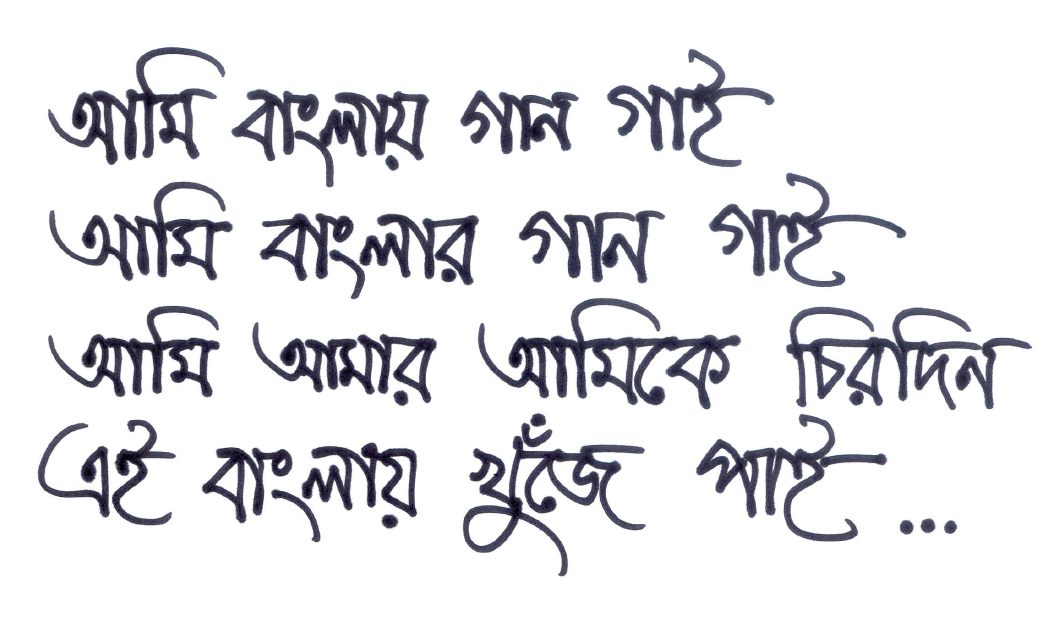 আমি বাংলায় গান গাই
আমি বাংলার গান গাই
আমি আমার আমিকে চিরদিন
এই বাংলায় খুঁজে পাই ...